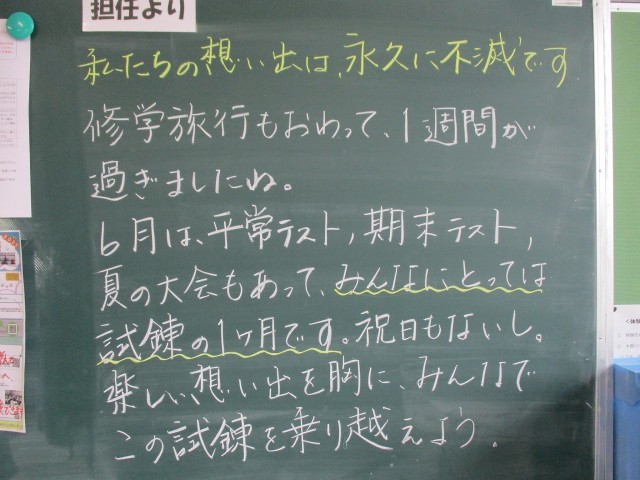 担任より
私たちの想い出は、永久に不滅です
修学旅行もおわって、1週間が
過ぎましたね。
6月は、平常テスト，期末テスト，
夏の大会もあって、みんなにとっては
試錬の1ヶ月です。祝日もないし。
楽しい想い出を胸に、みんなで
この試錬を乗り越えよう。